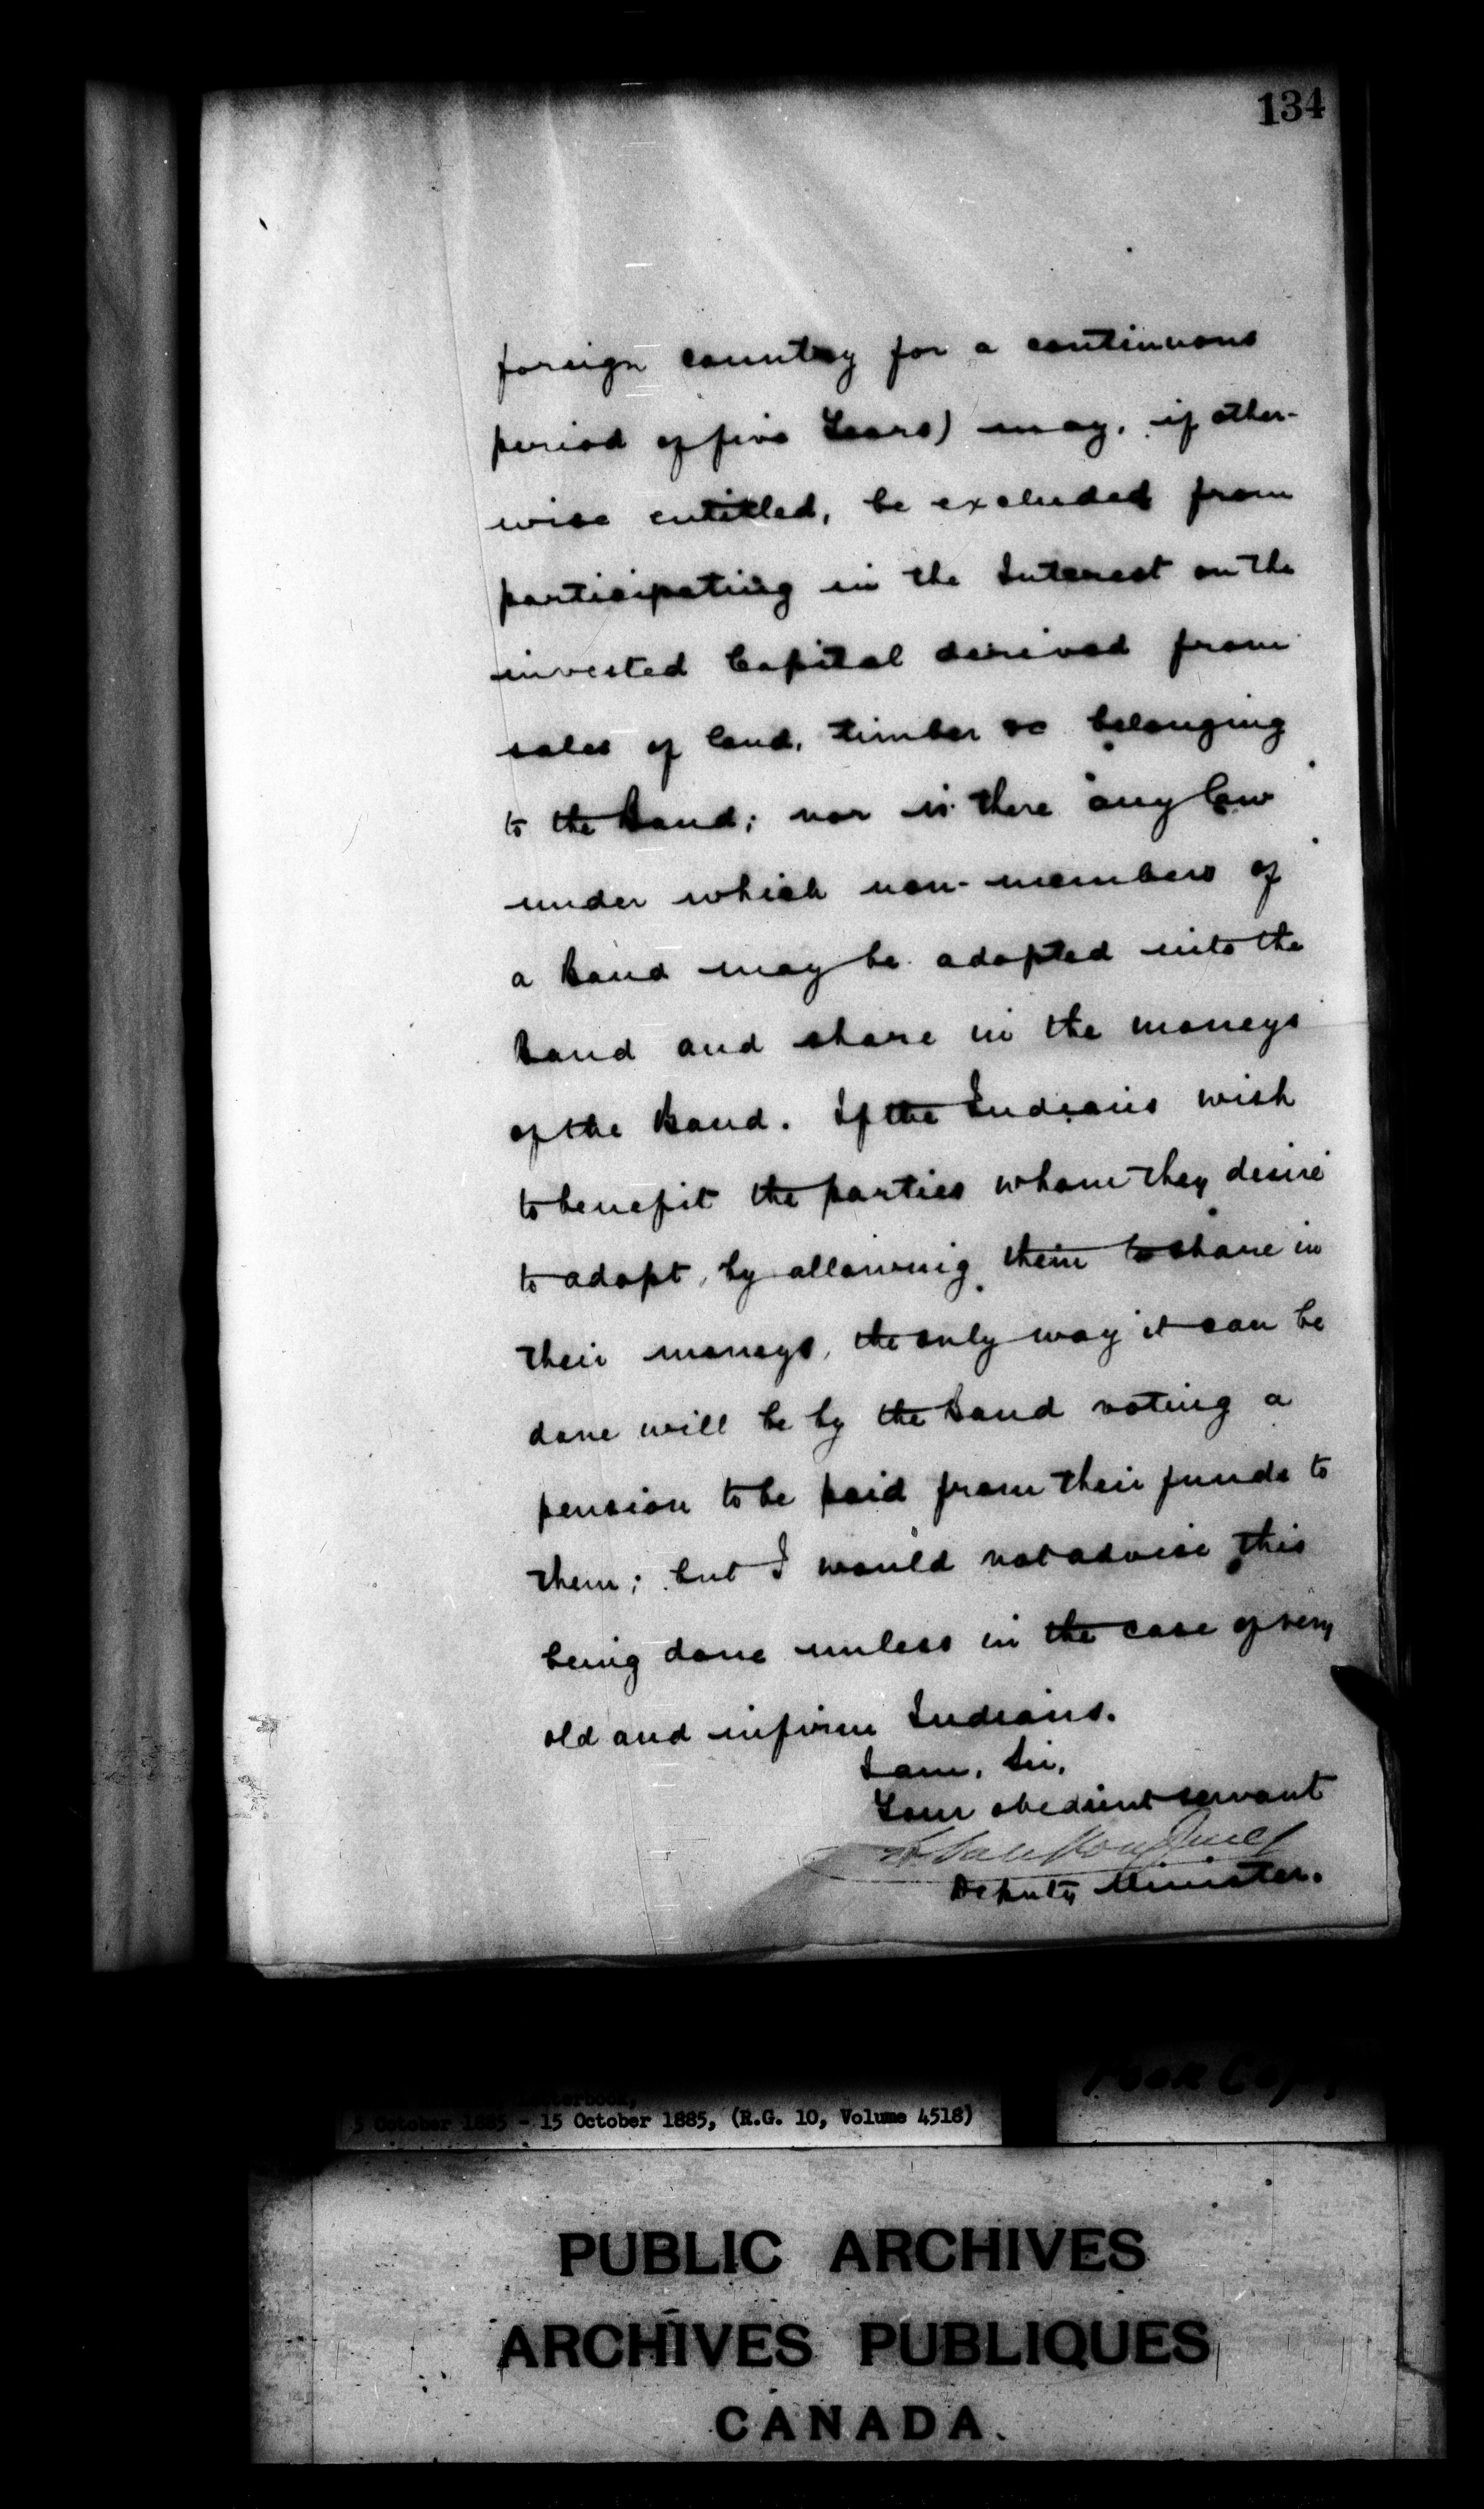 134
foreign country for a continuous
period of five Years) may, if other-
wise entitled, be excluded from
participating in the Interest on the
invested Capital derived from
sales of land, timber &c belonging
to the Band; nor is there any law
under which non-members of
a Band may be adopted into the
Band and share in the moneys
of the Band. If the Indians wish
to benefit the parties whom they desire
to adopt, by allowing them to share in
their moneys, the only way it can be
done will be by the Band voting a
pension to be paid from their funds to
them; but I would not advise this
being done unless in the case of very
old and infirm Indians.
I am, Sir,
Your obedient servant
L. VanKoughnet
Deputy Minister.
Letterbook,
5 October 1885 - 15 October 1885, (R.G. 10, Volume 4518)
Poor Copy
PUBLIC ARCHIVES
ARCHIVES PUBLIQUES
CANADA